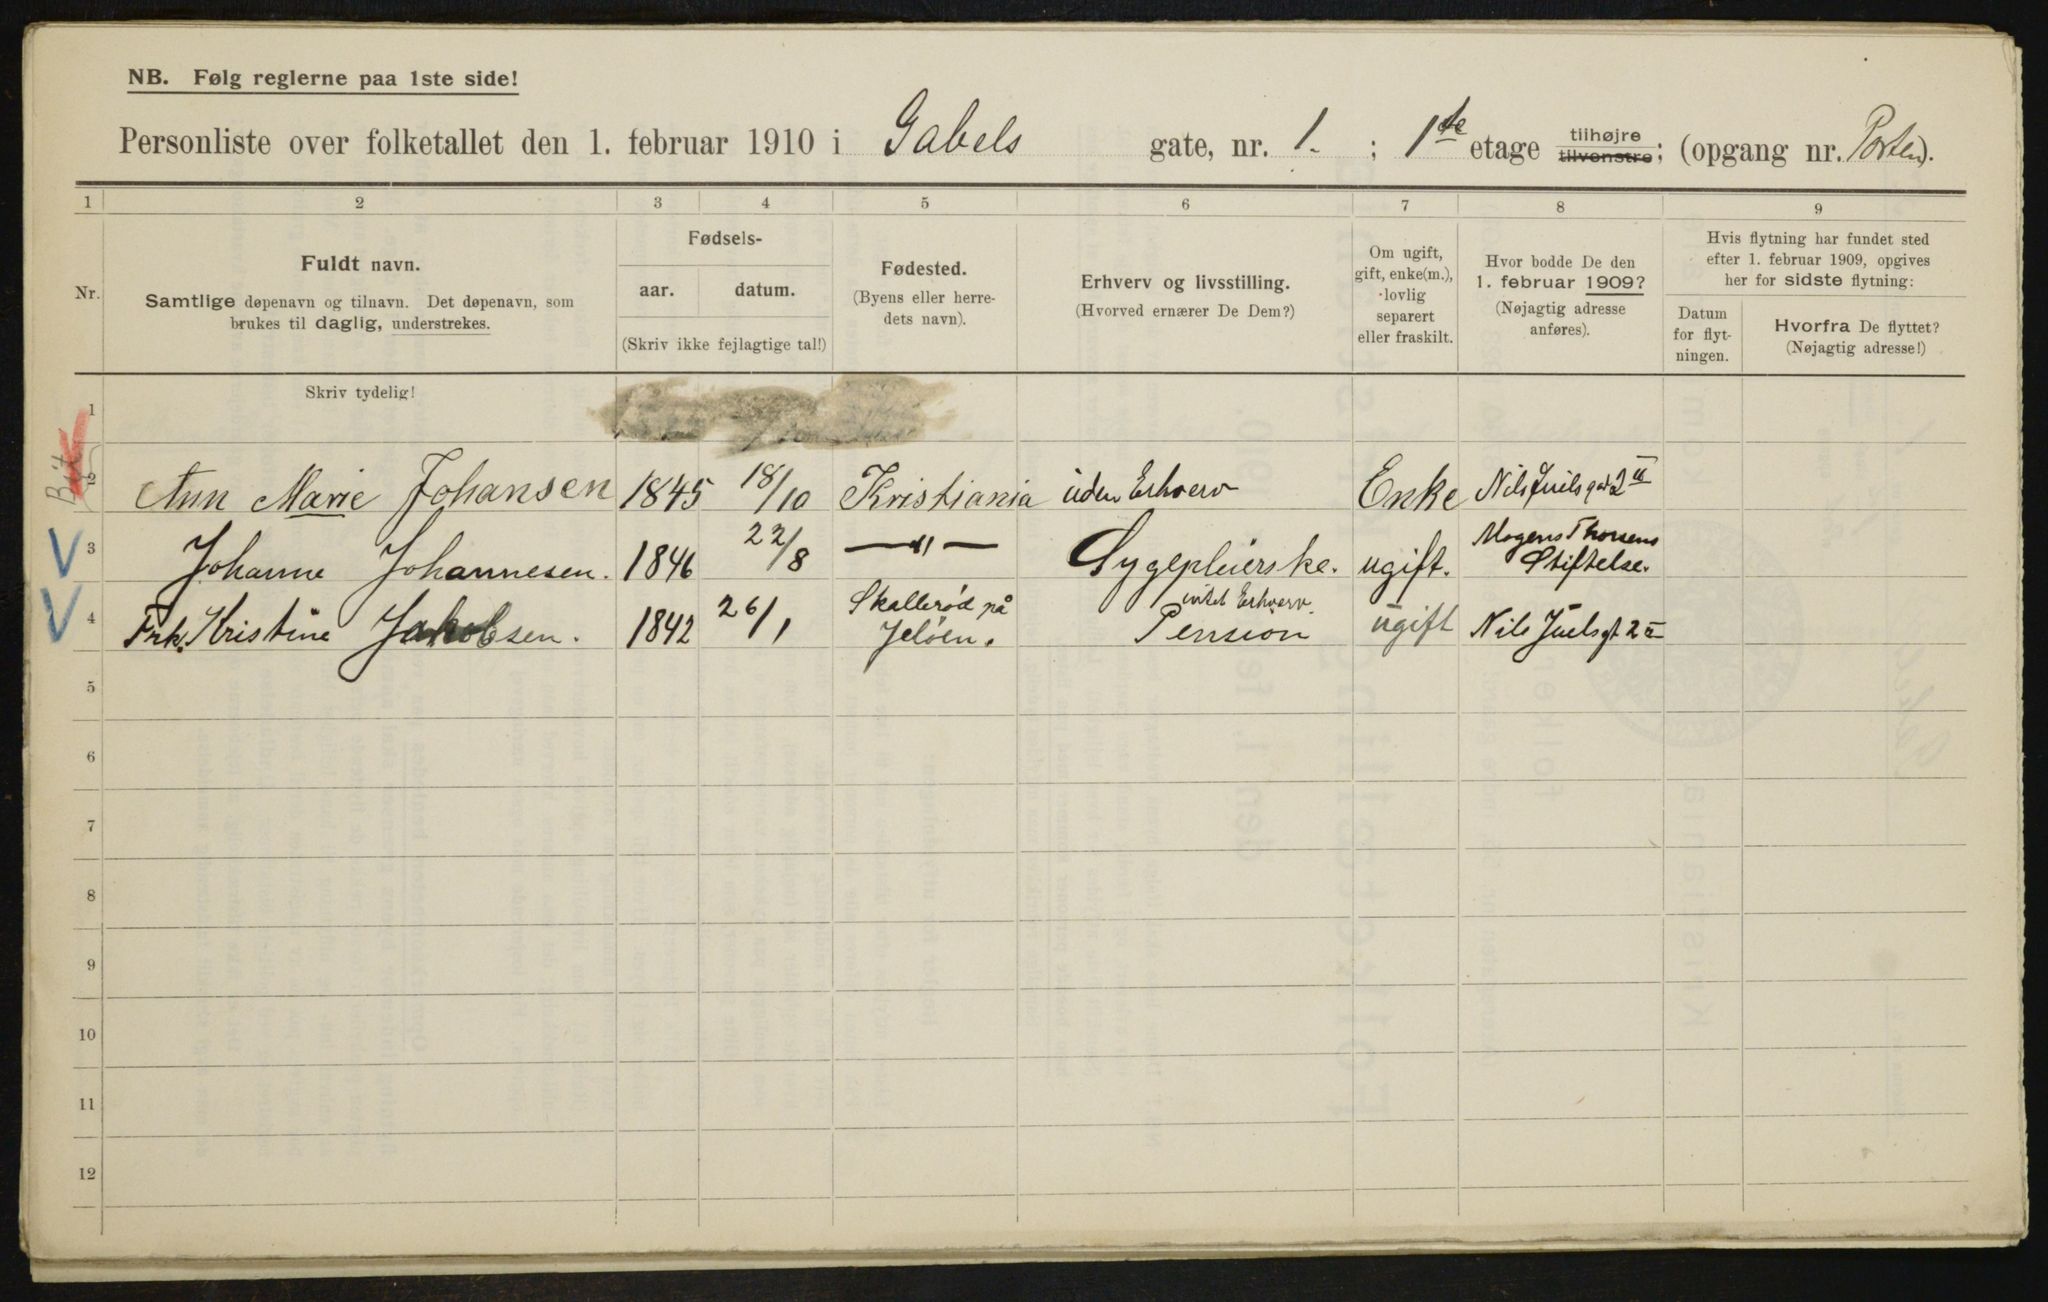 NB. Følg reglerne paa 1ste side!
Personliste over folketallet den 1. februar 1910 i Gabels gate, nr. 1. ; 1ste etage tilhøjre tilvenstre; (opgang nr. Porten).
1 2 3 4 5 6 7 8 9
Nr.
Fuldt navn.
Samtlige døpenavn og tilnavn. Det døpenavn, som
brukes til daglig, understrekes.
Fødsels-
aar. datum.
(Skriv ikke fejlagtige tal!)
Fødested.
(Byens eller herre-
dets navn).
Erhverv og livsstilling.
(Hvorved ernærer De Dem?)
Om ugift,
gift, enke(m.),
lovlig
separert
eller fraskilt.
Hvor bodde De den
1. februar 1909?
(Nøjagtig adresse
anføres).
Hvis flytning har fundet sted
efter 1. februar 1909, opgives
her for sidste flytning:
Datum
for flyt-
ningen.
Hvorfra De flyttet?
(Nøjagtig adresse!)
Skriv tydelig!
1
2 Ann Marie Johansen 1845 18/10 Kristiania uden Erhverv Enke Nils Juels gat 2 II
3 Johanne Johannesen. 1846 22/8 —"— Sygepleierske. ugift. Mogens Thorsens
Stiftelse.
4 Frk. Kristine Jakobsen. 1842 26/1 Skallerød på
Jeløen. intet Erhverv.
Pension ugift Nils Juels gt 2 II
5
6
7
8
9
10
11
12